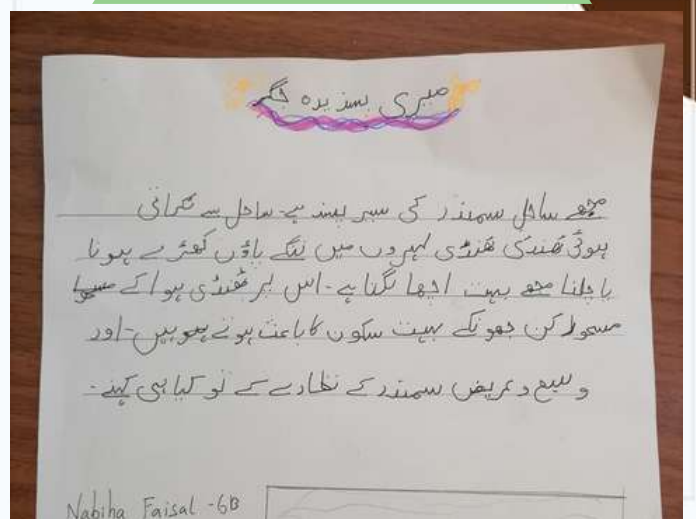 میری پسندیدہ جگہ
مجھے ساحل سمندر کی سیر پسند ہے۔ ساحل سے ٹکراتی
ہوئی ٹھنڈی ٹھنڈی لہروں میں ننگے پاؤں کھڑے ہونا
یا چلنا مجھے بہت اچھا لگتا ہے۔ اس پر ٹھنڈی ہوا کے
مسحور کن جھونکے بہت سکون کا باعث ہوتے ہیں۔ اور
وسیع و عریض سمندر کے نظارے کے تو کیا ہی کہنے۔
Nabiha Faisal -6B